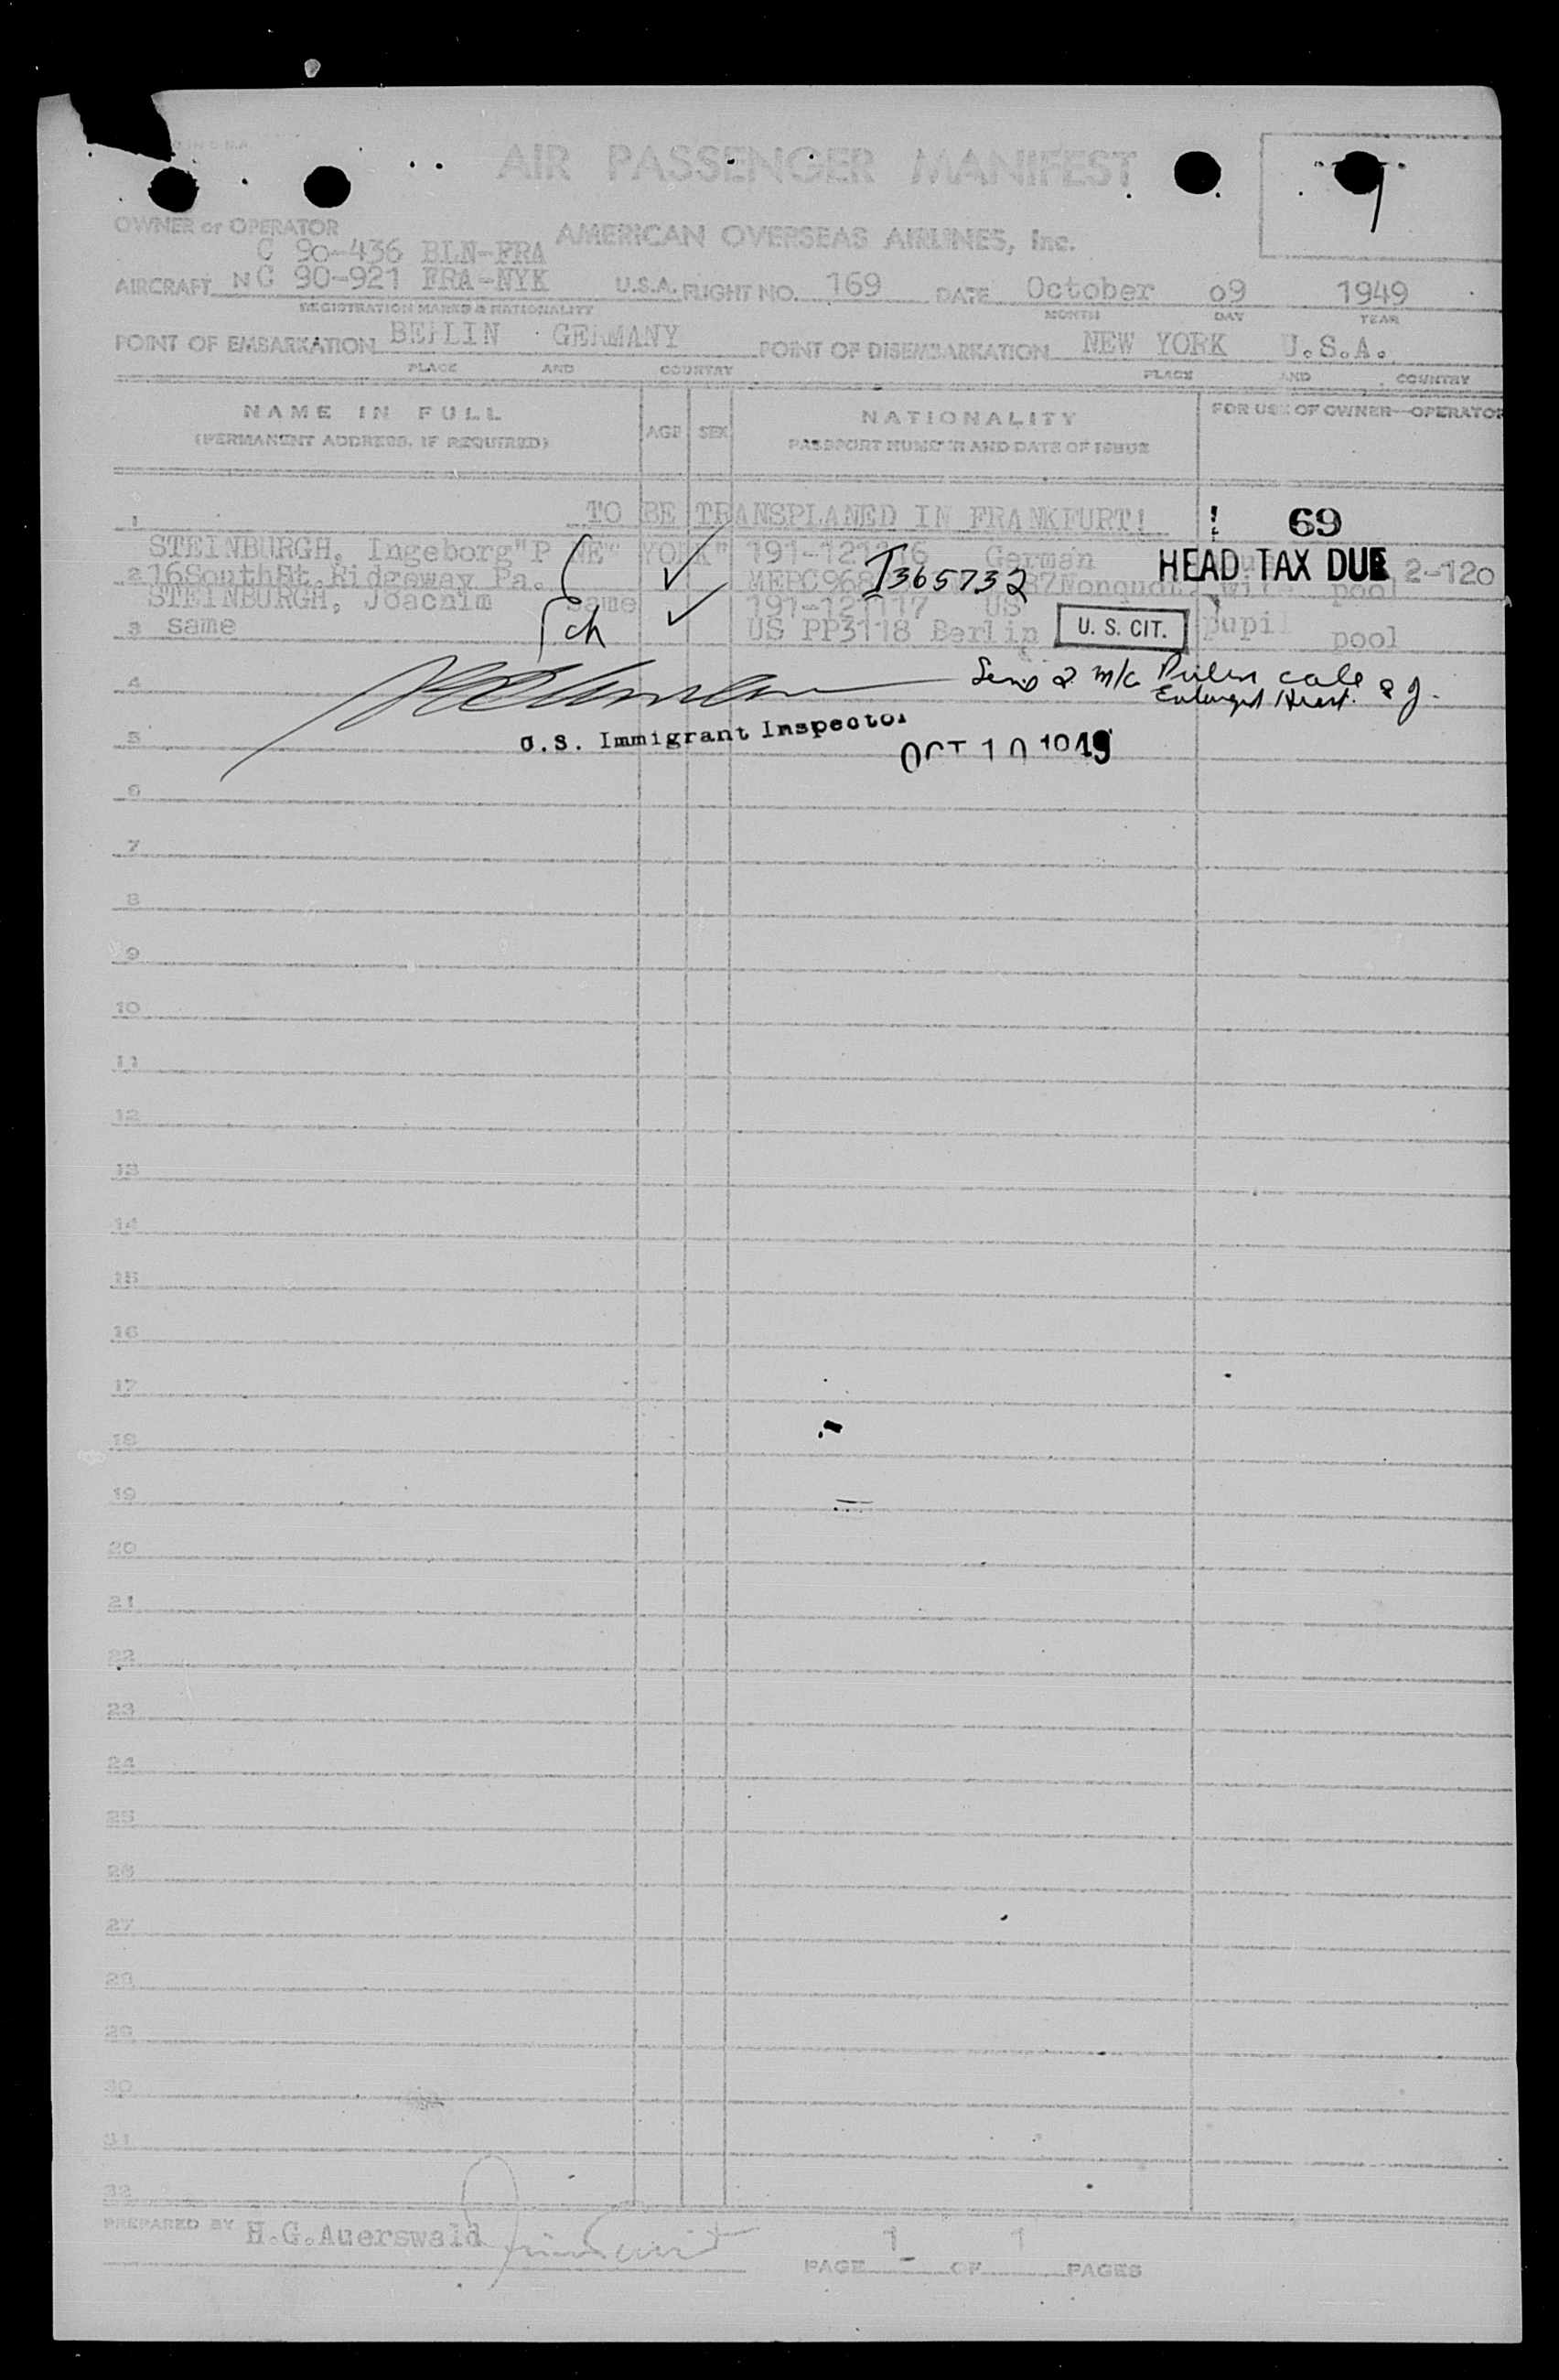 AIR PASSENGER MANIFEST
OWNER or OPERATOR
AMERICAN OVERSEAS AIRLINES, Inc.
C 90-436 BLN-FRA
AIRCRAFT NC 90-921 FRA-NYK U.S.A. FLIGHT NO. 169 DATE October 09 1949
REGISTRATION MARKS & NATIONALITY MONTH DAY YEAR
POINT OF EMBARKATION BERLIN GERMANY POINT OF DISEMBARKATION NEW YORK U.S.A.
PLACE AND COUNTRY PLACE AND COUNTRY
NAME IN FULL AGE SEX NATIONALITY FOR USE OF OWNER—OPERATOR
(PERMANENT ADDRESS, IF REQUIRED) PASSPORT NUMBER AND DATE OF ISSUE
1 TO BE TRANSPLANED IN FRANKFURT! 69
STEINBURGH, Ingeborg "P NEW YORK" 191-121116 German HEAD TAX DUE
2 16SouthSt.Ridgeway Pa. I365732 Nonquota wife pool 2-120
STEINBURGH, Joachim same 191-121117 US
3 same ch US PP3118 Berlin U. S. CIT. pupil pool
4
Enlarged Heart.
5 U.S. Immigrant Inspector OCT 10 1949
6
7
8
9
10
11
12
13
14
15
16
17
18
19
20
21
22
23
24
25
26
27
28
29
30
31
32
PREPARED BY H.G.Auerswald
PAGE 1 OF 1 PAGES